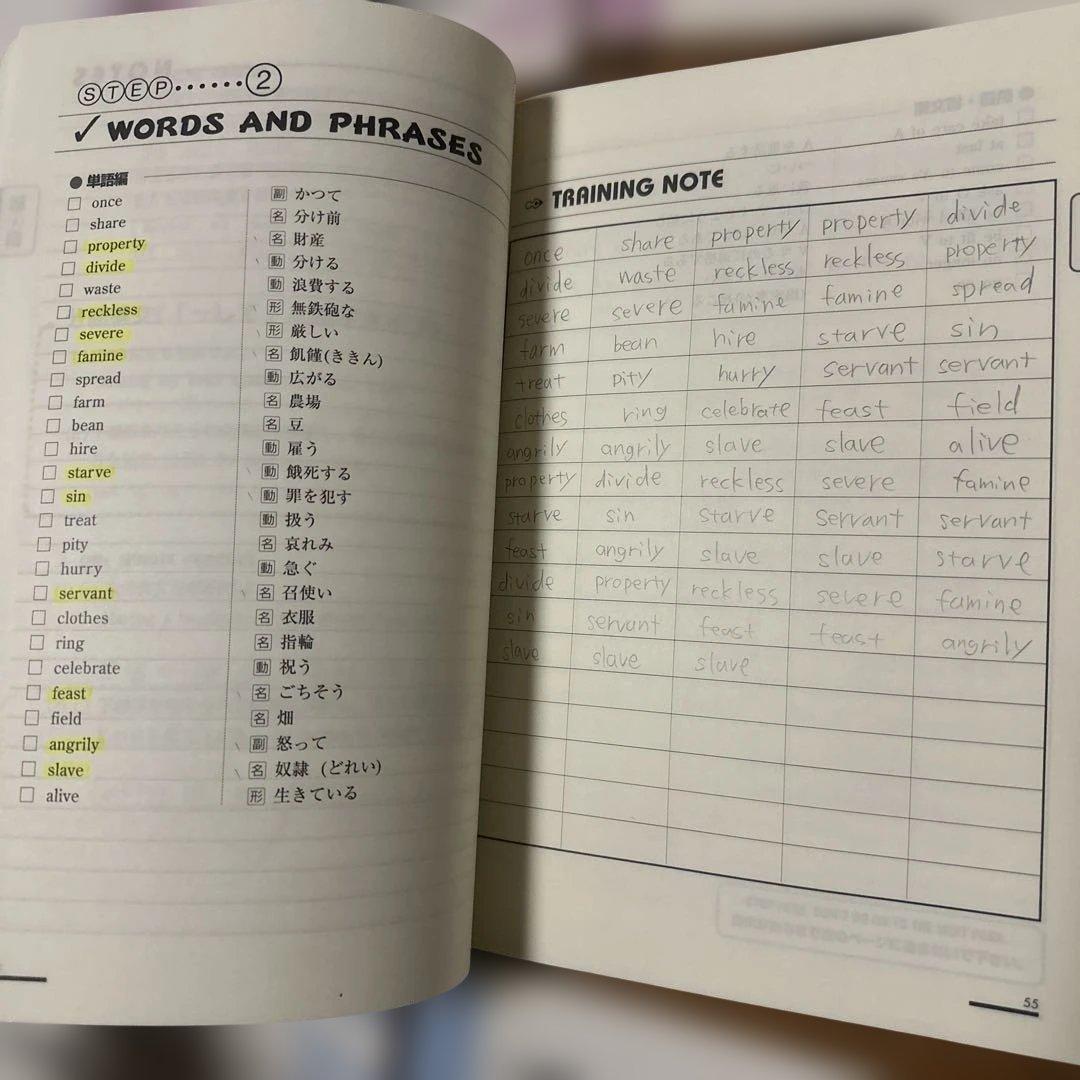 STEP……②
✓ WORDS AND PHRASES
● 単語編
□ once 副 かつて
□ share 名 分け前
□ property 名 財産
□ divide 動 分ける
□ waste 動 浪費する
□ reckless 形 無鉄砲な
□ severe 形 厳しい
□ famine 名 飢饉(ききん)
□ spread 動 広がる
□ farm 名 農場
□ bean 名 豆
□ hire 動 雇う
□ starve 動 餓死する
□ sin 動 罪を犯す
□ treat 動 扱う
□ pity 名 哀れみ
□ hurry 動 急ぐ
□ servant 名 召使い
□ clothes 名 衣服
□ ring 名 指輪
□ celebrate 動 祝う
□ feast 名 ごちそう
□ field 名 畑
□ angrily 副 怒って
□ slave 名 奴隷 (どれい)
□ alive 形 生きている
TRAINING NOTE
once share property property divide
divide waste reckless reckless property
severe severe famine famine spread
farm bean hire starve sin
treat pity hurry servant servant
clothes ring celebrate feast field
angrily angrily slave slave alive
property divide reckless severe famine
starve sin starve servant servant
feast angrily slave slave starve
divide property reckless severe famine
sin servant feast feast angrily
slave slave slave
55